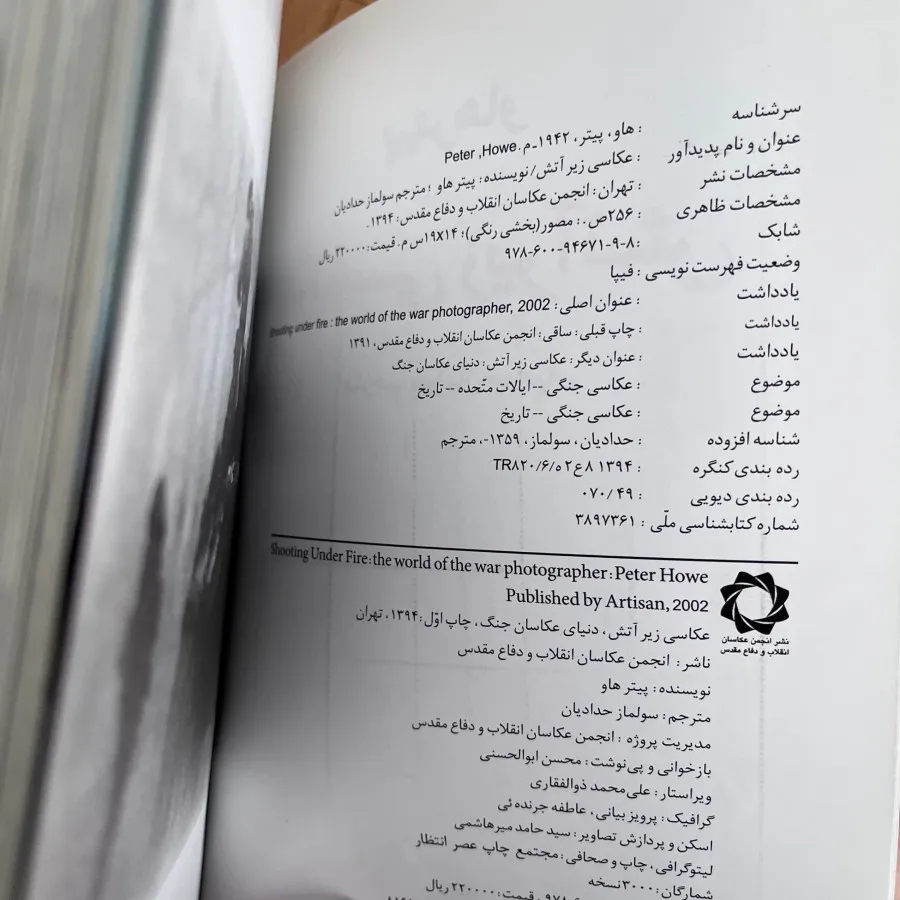 سرشناسه : هاو، پیتر، ۱۹۴۲-م. Peter ,Howe
عنوان و نام پدیدآور : عکاسی زیر آتش/ نویسنده: پیتر هاو ؛ مترجم سولماز حدادیان
مشخصات نشر : تهران: انجمن عکاسان انقلاب و دفاع مقدس: ۱۳۹۴.
مشخصات ظاهری : ۲۵۶ص.: مصور(بخشی رنگی)؛ ۱۹X۱۴س م. قیمت: ۲۲۰۰۰۰ ریال
شابک : ۹۷۸-۶۰۰-۹۴۶۷۱-۹-۸
وضعیت فهرست نویسی : فیپا
یادداشت : عنوان اصلی: Shooting under fire : the world of the war photographer, 2002
یادداشت : چاپ قبلی: ساقی: انجمن عکاسان انقلاب و دفاع مقدس، ۱۳۹۱
یادداشت : عنوان دیگر: عکاسی زیر آتش: دنیای عکاسان جنگ
موضوع : عکاسی جنگی -- ایالات متّحده -- تاریخ
موضوع : عکاسی جنگی -- تاریخ
شناسه افزوده : حدادیان، سولماز، ۱۳۵۹-، مترجم
رده بندی کنگره : ۱۳۹۴ ۸ع۲ه/۶/TR۸۲۰
رده بندی دیویی : ۰۷۰/۴۹
شماره کتابشناسی ملّی : ۳۸۹۷۳۶۱
Shooting Under Fire: the world of the war photographer: Peter Howe
Published by Artisan, 2002
نشر انجمن عکاسان
انقلاب و دفاع مقدس
عکاسی زیر آتش، دنیای عکاسان جنگ، چاپ اوّل: ۱۳۹۴، تهران
ناشر: انجمن عکاسان انقلاب و دفاع مقدس
نویسنده: پیتر هاو
مترجم: سولماز حدادیان
مدیریت پروژه : انجمن عکاسان انقلاب و دفاع مقدس
بازخوانی و پی‌نوشت: محسن ابوالحسنی
ویراستار: علی‌محمد ذوالفقاری
گرافیک: پرویز بیانی، عاطفه جرنده ئی
اسکن و پردازش تصاویر: سید حامد میرهاشمی
لیتوگرافی، چاپ و صحافی: مجتمع چاپ عصر انتظار
شمارگان: ۳۰۰۰نسخه
قیمت: ۲۲۰۰۰۰ ریال